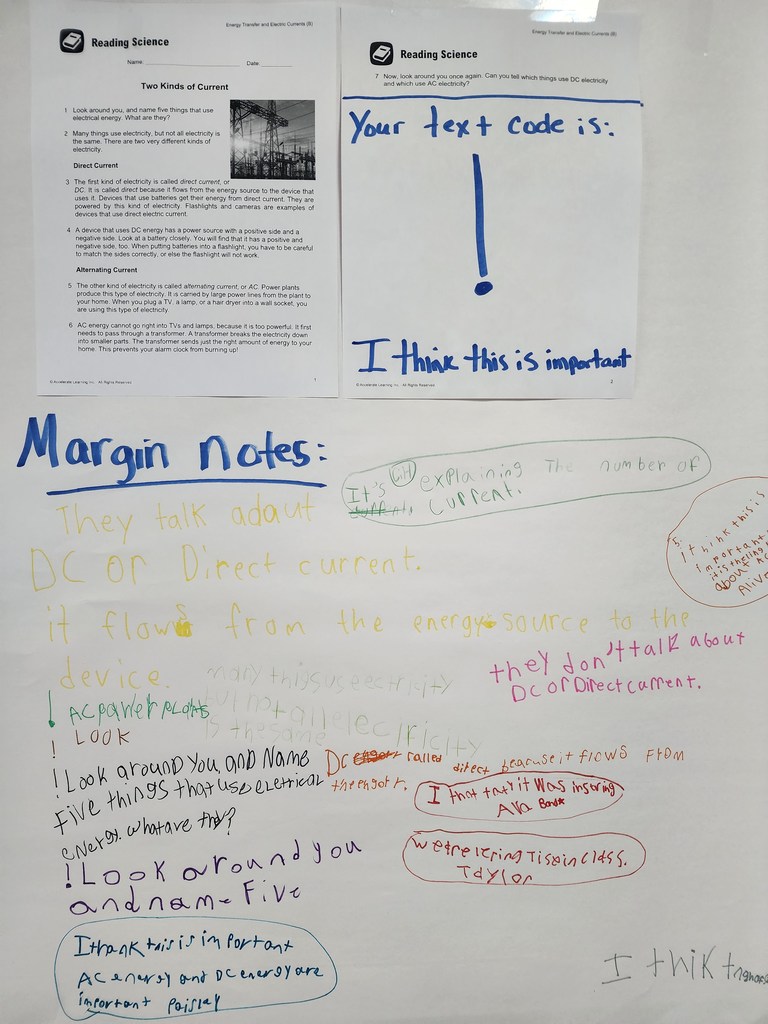 Energy Transfer and Electric Currents (B)
Reading Science
Name: Date:
Two Kinds of Current
1 Look around you, and name five things that use
electrical energy. What are they?
2 Many things use electricity, but not all electricity is
the same. There are two very different kinds of
electricity.
Direct Current
3 The first kind of electricity is called direct current, or
DC. It is called direct because it flows from the energy source to the device that
uses it. Devices that use batteries get their energy from direct current. They are
powered by this kind of electricity. Flashlights and cameras are examples of
devices that use direct electric current.
4 A device that uses DC energy has a power source with a positive side and a
negative side. Look at a battery closely. You will find that it has a positive and
negative side, too. When putting batteries into a flashlight, you have to be careful
to match the sides correctly, or else the flashlight will not work.
Alternating Current
5 The other kind of electricity is called alternating current, or AC. Power plants
produce this type of electricity. It is carried by large power lines from the plant to
your home. When you plug a TV, a lamp, or a hair dryer into a wall socket, you
are using this type of electricity.
6 AC energy cannot go right into TVs and lamps, because it is too powerful. It first
needs to pass through a transformer. A transformer breaks the electricity down
into smaller parts. The transformer sends just the right amount of energy to your
home. This prevents your alarm clock from burning up!
© Accelerate Learning Inc. - All Rights Reserved
1
Energy Transfer and Electric Currents (B)
Reading Science
7 Now, look around you once again. Can you tell which things use DC electricity
and which use AC electricity?
Your text code is:
!
I think this is important
© Accelerate Learning Inc. - All Rights Reserved
2
Margin notes:
It's GH explaining The number of
current.
They talk adaut
DC or Direct current.
it flows from the energy source to the
device.
5. I think this is
important
it is
about AC
they don't talk about
DC or Direct current.
many
electricity
is the same
! AC
! LOOK
! Look around You, and Name
Five things that use eletrical
energy. what are they?
DC called direct because it flows From
! Look around you
and name Five
I that it was
Ava
Taylor
I thank this is important
AC energy and DC energy are
important Paislay
I thik